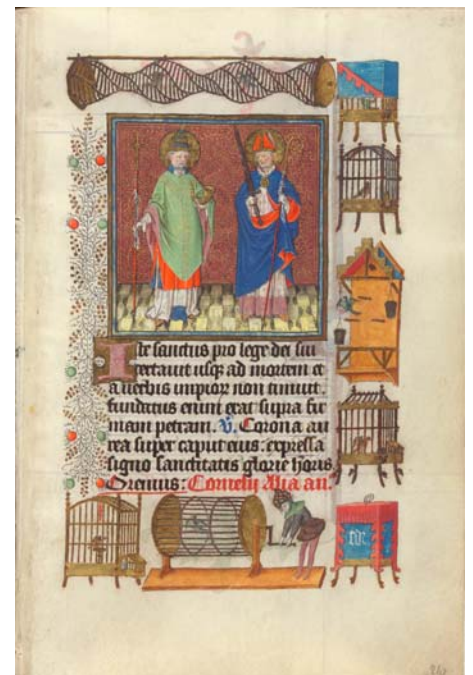 Iste sanctus pro lege dei sui
certauit usqꝫ ad mortem et
a uerbis impioꝝ non timuit.
fundatus enim erat supra fir
mam petram. V. Corona au
rea super caput eius: expressa
signo sanctitatis glorie honoris
Oremus: Cornelij Alia an.